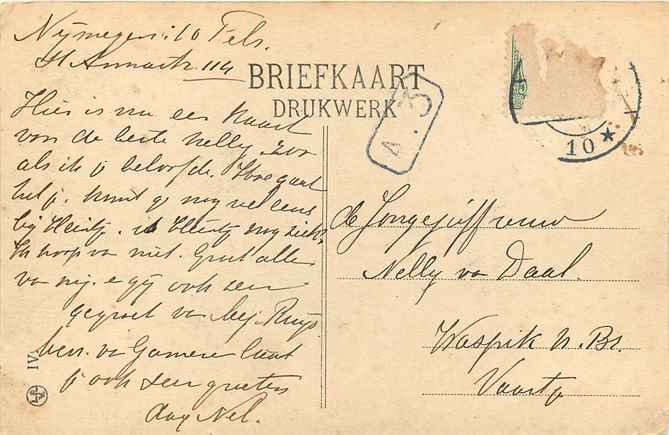 Nijmegen: 10 Febr.
St Annastr. 114
BRIEFKAART
DRUKWERK
A.3
10 ★
Hier is nu een kaart
voor de beste Nelly zoo
als ik je beloofde. Hoe gaat
het je. kunt gij nog wel eens
bij Heintje. is Heintje nog ziek.
Ik hoop van niet. Groet allen
van mij. e gij ook zeer
gegroet van bej. Ruys
ben. v. Gameren laat
je ook zeer groeten
dag Nel.
de Jongejuffrouw
Nelly v. Daal.
Waspik N. Br.
Vaartje
IV.